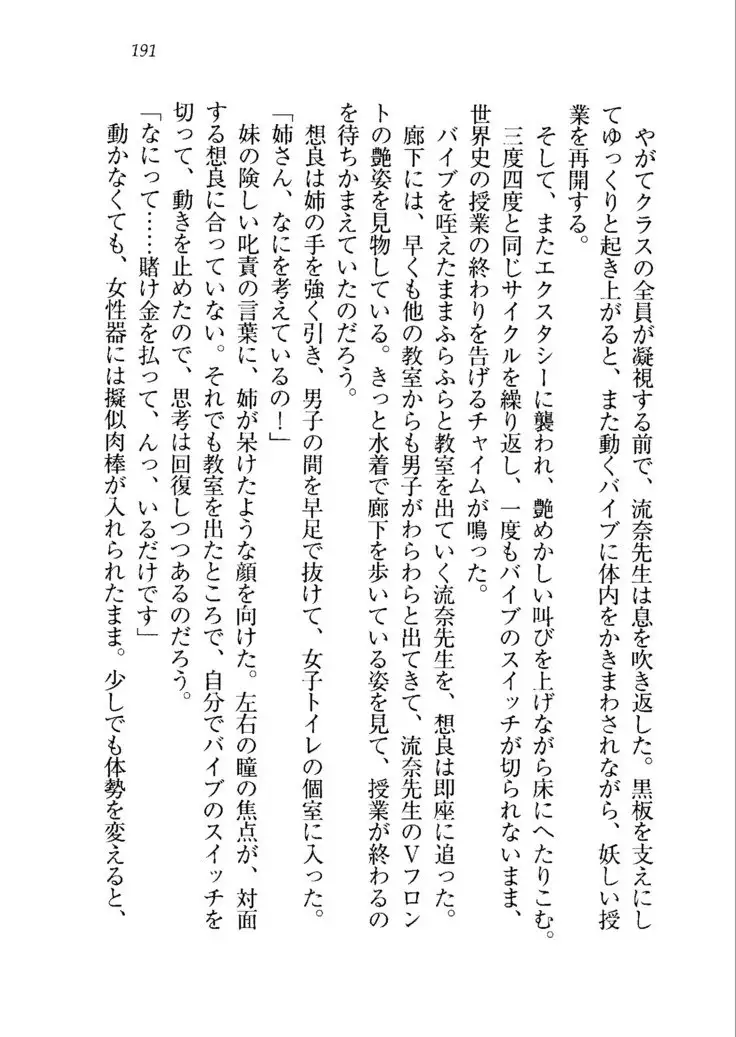 191
やがてクラスの全員が凝視する前で、流奈先生は息を吹き返した。黒板を支えにし
てゆっくりと起き上がると、また動くバイブに体内をかきまわされながら、妖しい授
業を再開する。
そして、またエクスタシーに襲われ、艶めかしい叫びを上げながら床にへたりこむ。
三度四度と同じサイクルを繰り返し、一度もバイブのスイッチが切られないまま、
世界史の授業の終わりを告げるチャイムが鳴った。
バイブを咥えたままふらふらと教室を出ていく流奈先生を、想良は即座に追った。
廊下には、早くも他の教室からも男子がわらわらと出てきて、流奈先生のVフロン
トの艶姿を見物している。きっと水着で廊下を歩いている姿を見て、授業が終わるの
を待ちかまえていたのだろう。
想良は姉の手を強く引き、男子の間を早足で抜けて、女子トイレの個室に入った。
「姉さん、なにを考えているの!」
妹の険しい叱責の言葉に、姉が呆けたような顔を向けた。左右の瞳の焦点が、対面
する想良に合っていない。それでも教室を出たところで、自分でバイブのスイッチを
切って、動きを止めたので、思考は回復しつつあるのだろう。
「なにって……賭け金を払って、んっ、いるだけです」
動かなくても、女性器には擬似肉棒が入れられたまま。少しでも体勢を変えると、